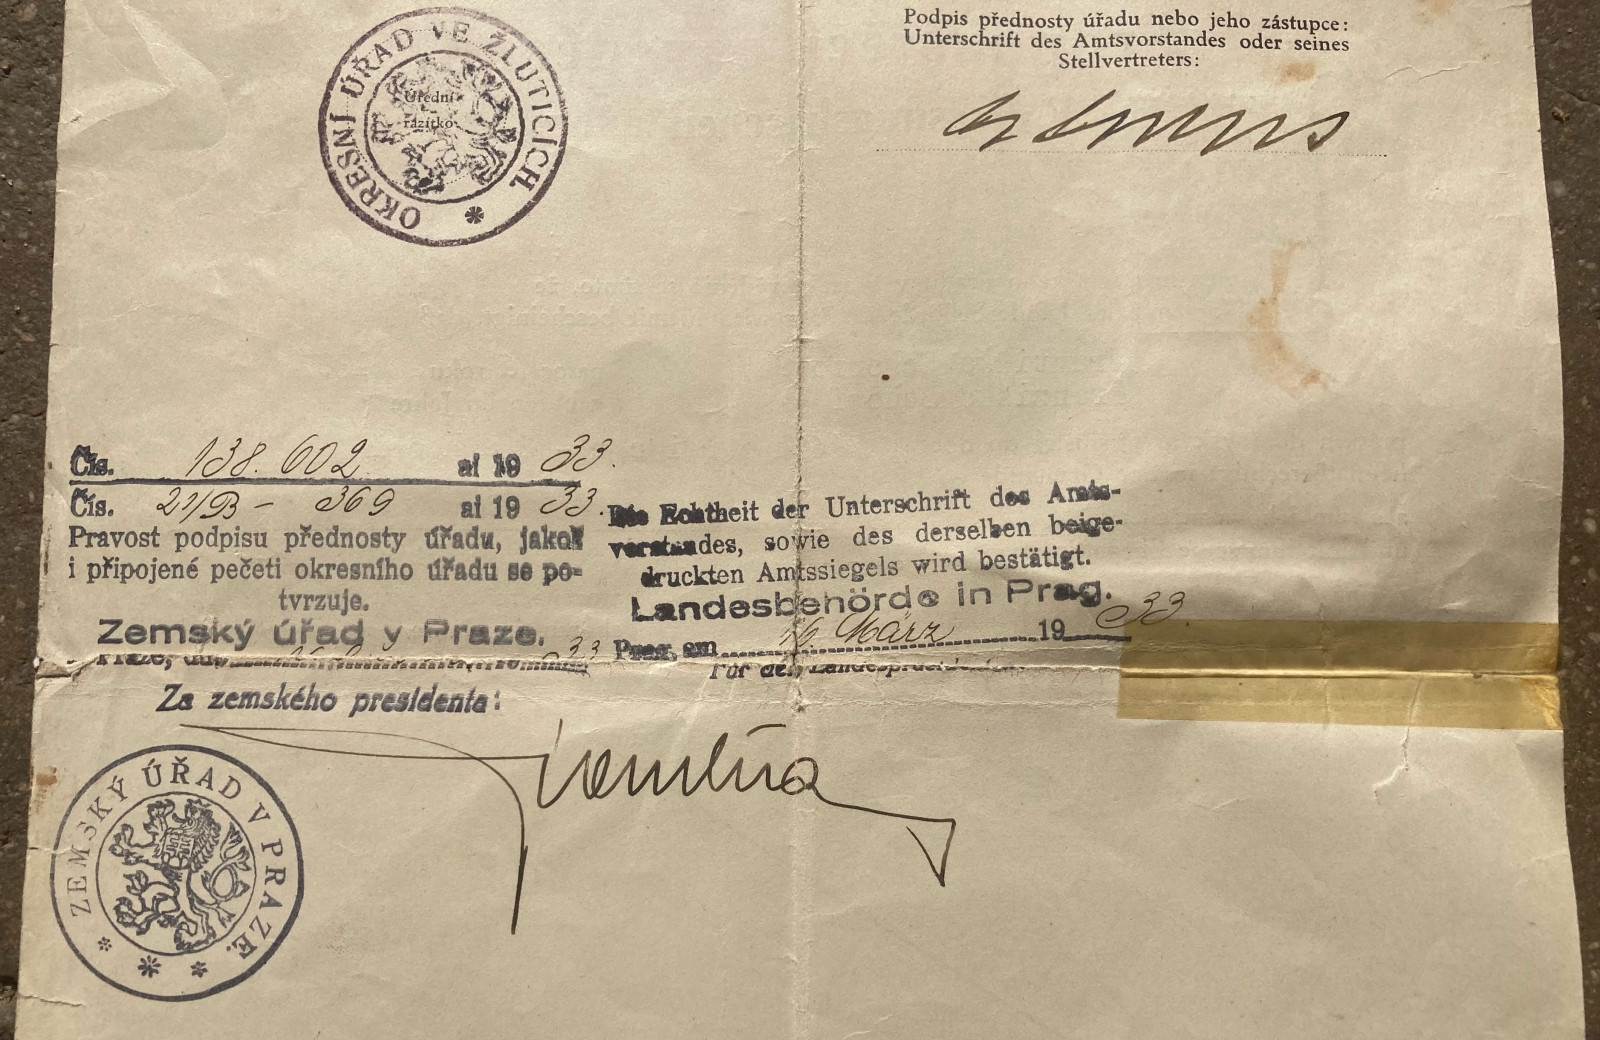 OKRESNÍ ÚŘAD VE ŽLUTICÍCH.
Úřední
razítko
Podpis přednosty úřadu nebo jeho zástupce:
Unterschrift des Amtsvorstandes oder seines
Stellvertreters:
Čís. 138.602 ai 1933.
Čís. 21/B - 369 ai 1933.
Pravost podpisu přednosty úřadu, jakož
i připojené pečeti okresního úřadu se po-
tvrzuje.
Zemský úřad v Praze.
Praze, dne 33
Za zemského presidenta:
Die Echtheit der Unterschrift des Amts-
vorstandes, sowie des derselben beige-
druckten Amtssiegels wird bestätigt.
Landesbehörde in Prag.
Prag, am 16. März 1933.
Für den Landespräsidenten
ZEMSKÝ ÚŘAD V PRAZE.